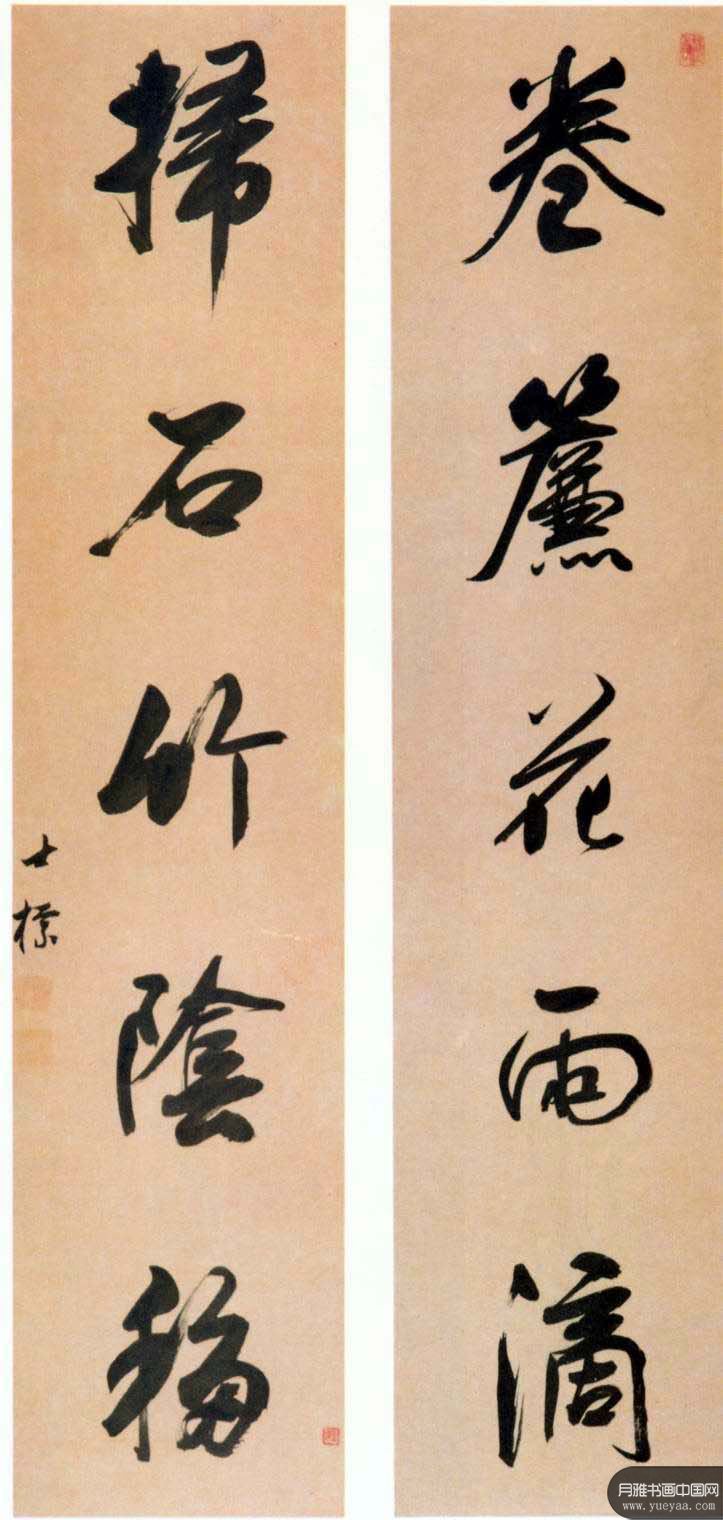 卷簾花雨滴
掃石竹陰移
士標
月雅书画中国网
www.yueyaa.com